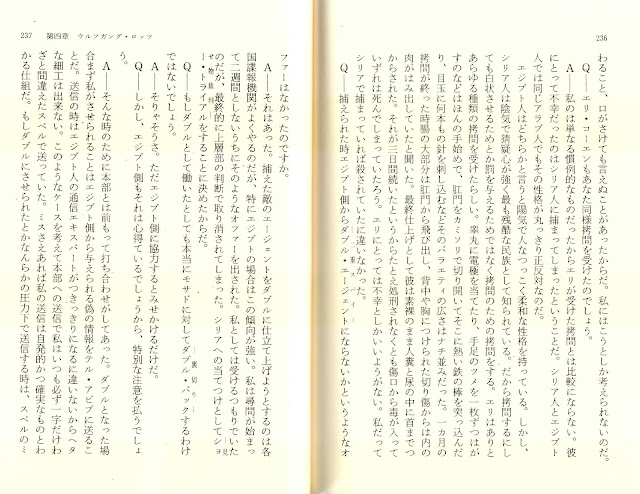 236
わること、口がさけても言えぬことがあったからだ。私にはこうとしか考えられないのだ。
Q――エリ・コーエンもあなた同様拷問を受けたのでしょう。
A――私のは単なる慣例的なものだったからエリが受けた拷問とは比較にならない。彼
にとって不幸だったのはシリア人に捕まってしまったということだ。シリア人とエジプト
人では同じアラブ人でもその性格が丸っきり正反対なのだ。
エジプト人はどちらかと言うと陽気で人なつっこく柔和な性格を持っている。しかし、
シリア人は陰気で猜疑心が強く最も残酷な民族として知られている。だから拷問するにし
ても白状させるためとか罰を与えるためではなく拷問のための拷問をする。エリはありと
あらゆる種類の拷問を受けたらしい。睾丸に電極を当てたり、手足のツメを一枚ずつはが
すのなどはほんの手始めで、肛門をカミソリで切り開いてそこに熱い鉄の棒を突っ込んだ
り、目玉に何本もの針を刺し込むなどそのバラエティの広さはナチ並みだった。一カ月の
拷問が終った時腸の大部分は肛門から飛び出し、背中や胸につけられた切り傷からは内の
肉がはみ出していたと聞いた。最終仕上げとして彼は素裸のまま人糞と尿の中に首までつ
からされた。それが三日間続いたというからたとえ処刑されなくとも傷口から毒が入って
いずれは死んでしまっていたろう。エリにとっては不幸としかいいようがない。私だって
シリアで捕まっていれば殺されていたに違いなかった。
Q――捕えられた時エジプト側からダブル・エージェントにならないかというようなオ
237 第四章 ウルフガング・ロッツ
ファーはなかったのですか。
A――それはあった。捕えた敵のエージェントをダブルに仕立て上げようとするのは各
国諜報機関がよくやるのだが、特にエジプトの場合はこの傾向が強い。私は尋問が始まっ
て二週間としないうちにそのようなオファーを出された。私としては受けるつもりでいた
のだが、最終的に上層部の判断で取り消されてしまった。シリアへの当てつけとしてショ
ー・トライアルをすることに決めたからだ。
Q――もしダブルとして働いたとしても本当にモサドに対してダブル・バックするわけ
ではないでしょう。
A――そりゃそうさ。ただエジプト側に協力するとみせかけるだけだ。
Q――しかし、エジプト側もそれは心得ているでしょうから、特別な注意を払うでしょ
う。
A――そんな時のために本部とは前もって打ち合わせがしてあった。ダブルとなった場
合まず私がさせられることはエジプト側から与えられる偽の情報をテル・アビブに送るこ
とだ。送信の時はエジプト人の通信エキスパートがつきっきりになるに違いないからヘタ
な細工は出来ない。このようなケースを考えて本部への送信で私はいつも必ず一字だけわ
ざと間違えたスペルで送っていた。ミスさえあれば私の送信は自発的かつ確実なものとわ
かる仕組だ。もしダブルにさせられたとかなんらかの圧力下で送信する時は、スペルのミ